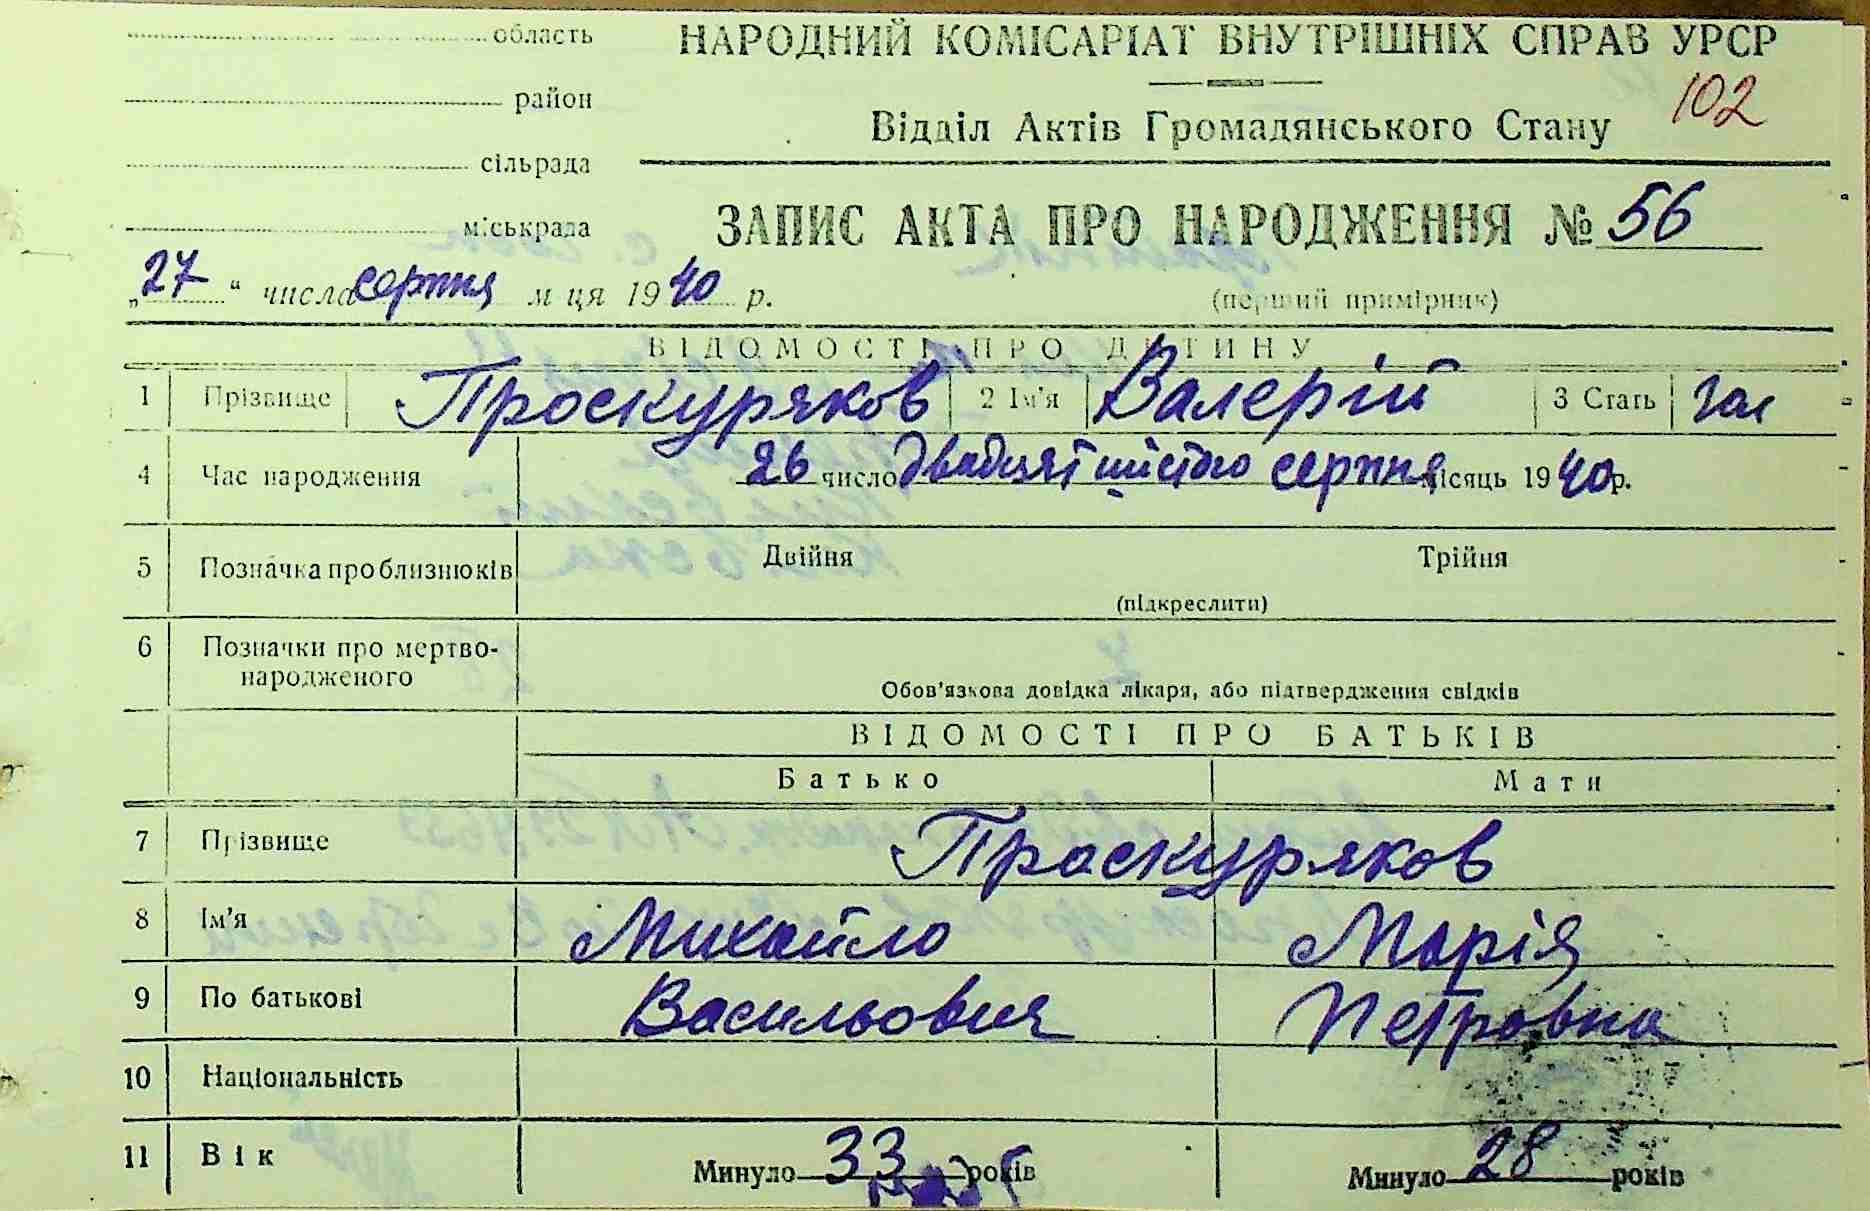 область
район
сільрада
міськрада
НАРОДНИЙ КОМІСАРІАТ ВНУТРІШНІХ СПРАВ УРСР
102
Відділ Актів Громадянського Стану
ЗАПИС АКТА ПРО НАРОДЖЕННЯ № 56
„27“ числа серпня м ця 1940 р.
(перший примірник)
ВІДОМОСТІ ПРО ДИТИНУ
1 Прізвище Проскуряков 2 Ім'я Валерій 3 Стать чол
4 Час народження 26 число двадцят шістго серпня місяць 1940 р.
5 Позначка про близнюків Двійня Трійня
(підкреслити)
6 Позначки про мертво-
народженого
Обов'язкова довідка лікаря, або підтвердження свідків
ВІДОМОСТІ ПРО БАТЬКІВ
Батько Мати
7 Прізвище Проскуряков
8 Ім'я Михайло Марія
9 По батькові Васильович Петровна
10 Національність
11 Вік Минуло 33 років Минуло 28 років